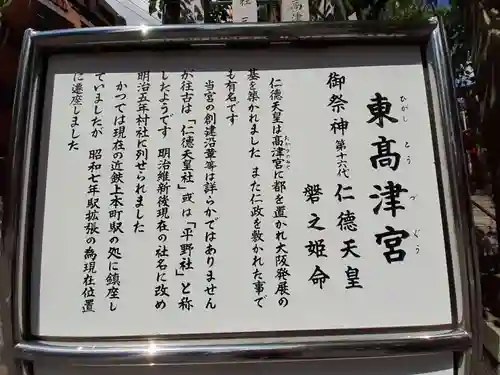 東高津宮
ひがし こうづぐう
御祭神 第十六代 仁德天皇
磐之姫命
仁徳天皇は高津宮に都を置かれ大阪発展の
基を築かれました また仁政を敷かれた事で
も有名です
当宮の創建沿革等は詳らかではありません
が往古は「仁德天皇社」或は「平野社」と称
したようです 明治維新後現在の社名に改め
明治五年村社に列せられました
かつては現在の近鉄上本町駅の処に鎮座し
ていましたが 昭和七年駅拡張の為現在位置
に遷座しました